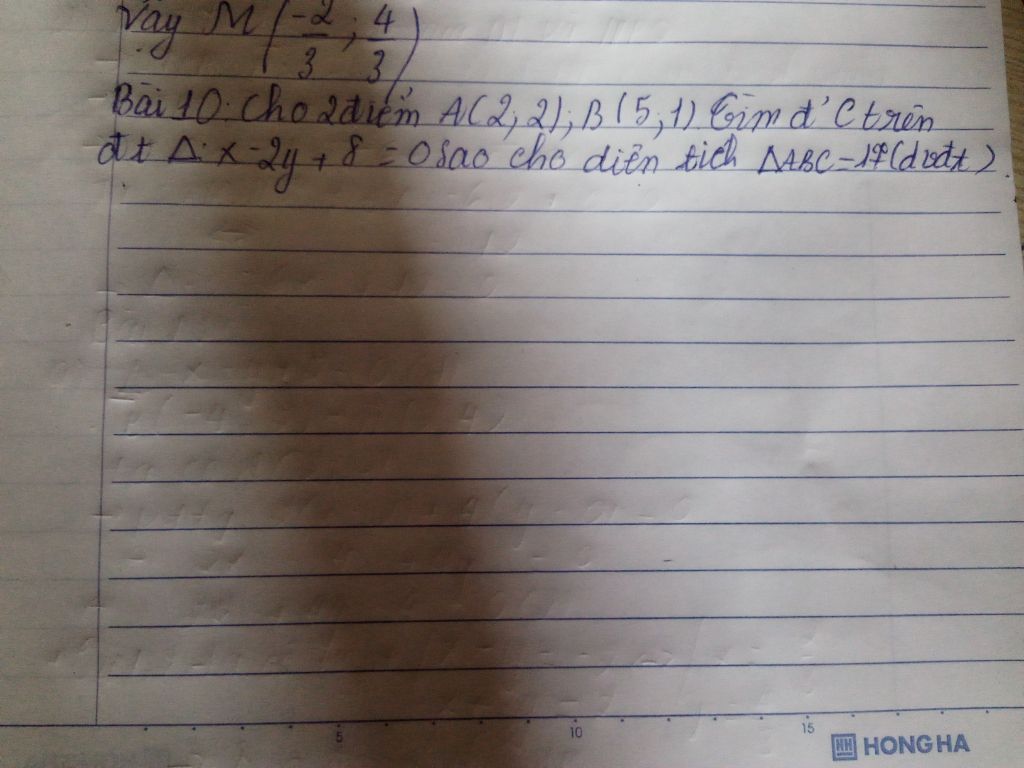 Vậy M(-2/3; 4/3)
Bài 10: Cho 2 điểm A(2;2); B(5;1) Tìm đ' C trên
đt Δ: x-2y+8=0 sao cho diện tích ΔABC=17(dvdt).
5 10 15
HH HONG HA